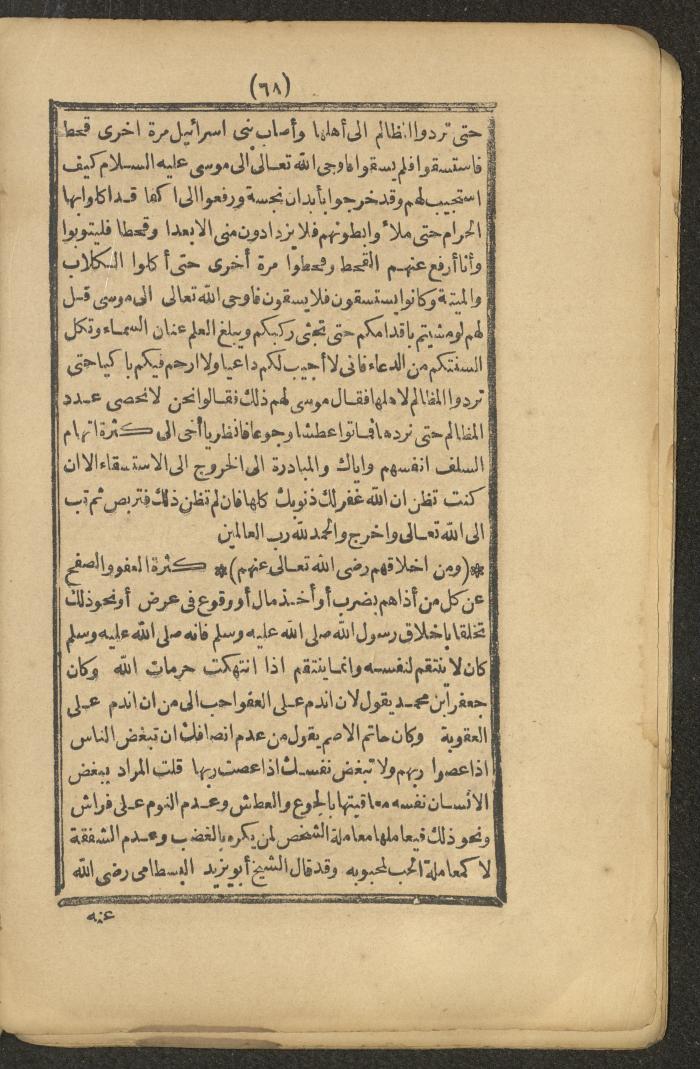 (٦٨)
حتى تردوا المظالم الى أهلها وأصاب بنى اسرائيل مرة اخرى قحط
فاستسقوا فلم يسقوا فاوحى الله تعالى الى موسى عليه السلام كيف
استجيب لهم وقد خرجوا بأبدان نجسة ورفعوا الى اكفا قد اكلوا بها
الحرام حتى ملأوا بطونهم فلا يزدادون منى الا بعدا وقحطا فليتوبوا
وأنا أرفع عنهم القحط وقحطوا مرة أخرى حتى أكلوا الكلاب
والميتة وكانوا يستسقون فلا يسقون فاوحى الله تعالى الى موسى قل
لهم لو مشيتم باقدامكم حتى تجثى ركبكم ويبلغ العلم عنان السماء وتكل
السنتكم من الدعاء فانى لا أجيب لكم داعيا ولا ارحم فيكم باكيا حتى
تردوا المظالم لاهلها فقال موسى لهم ذلك فقالوا نحن لا نحصى عدد
المظالم حتى نردها فماتوا عطشا وجوعا فانظر يا أخى الى كثرة اتهام
السلف انفسهم واياك والمبادرة الى الخروج الى الاستسقاء الا ان
كنت تظن ان الله غفر لك ذنوبك كلها فان لم تظن ذلك فتربص ثم تب
الى الله تعالى واخرج والحمد لله رب العالمين
*(ومن اخلاقهم رضى الله تعالى عنهم)* كثرة العفو والصفح
عن كل من أذاهم بضرب أو أخذ مال أو وقوع فى عرض أو نحو ذلك
تخلقا باخلاق رسول الله صلى الله عليه وسلم فانه صلى الله عليه وسلم
كان لا ينتقم لنفسه وانما ينتقم اذا انتهكت حرمات الله وكان
جعفر ابن محمد يقول لان اندم على العفو احب الى من ان اندم على
العقوبة وكان حاتم الاصم يقول من عدم انصافك ان تبغض الناس
اذا عصوا ربهم ولا تبغض نفسك اذا عصت ربها قلت المراد ببغض
الانسان نفسه معاقبتها بالجوع والعطش وعدم النوم على فراش
ونحو ذلك فيعاملها معاملة الشخص لمن يكره بالغضب وعدم الشفقة
لا كمعاملة الحب لمحبوبه وقد قال الشيخ أبو يزيد البسطامى رضى الله
عنه